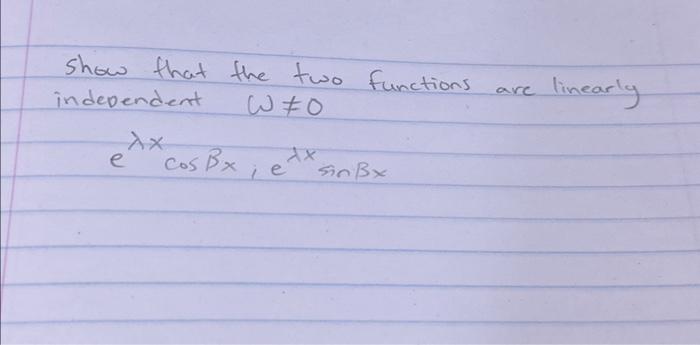 show that the two functions are linearly
independent W ≠ 0
e^λx cos βx ; e^λx sin βx